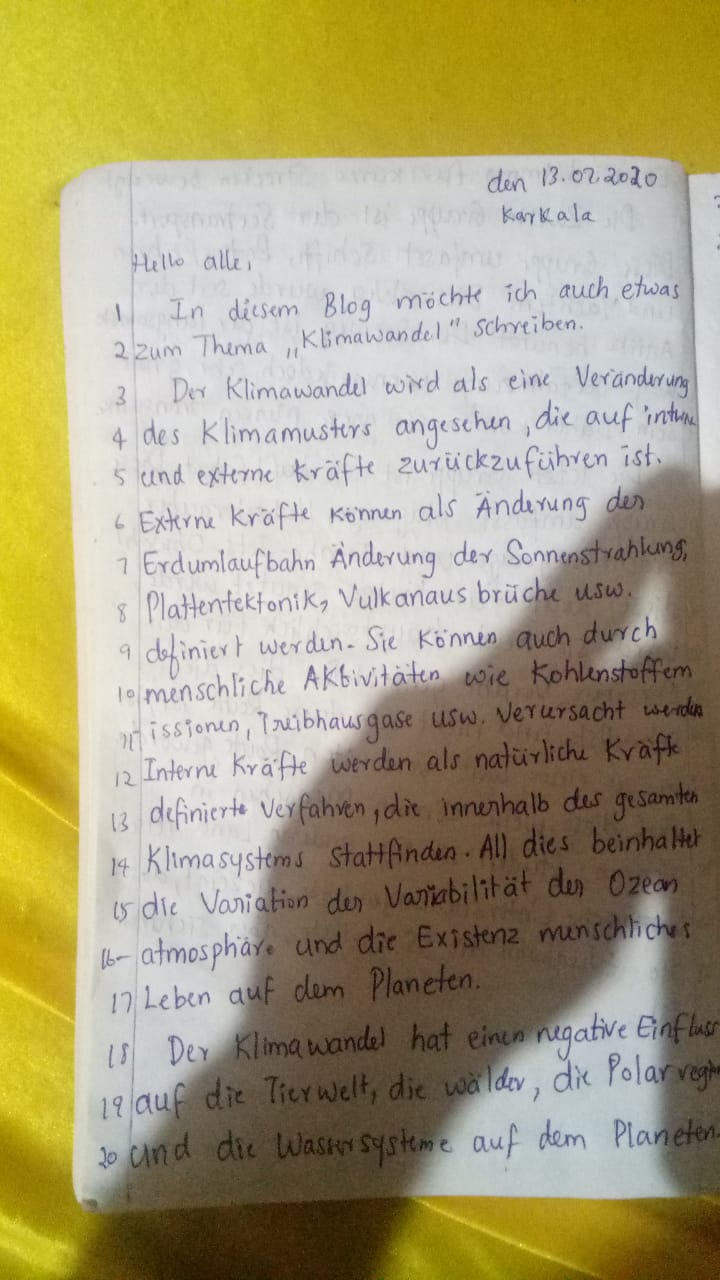 den 13.02.2020
Karkala
Hello alle,
1 In diesem Blog möchte ich auch etwas
2 zum Thema „Klimawandel" schreiben.
3 Der Klimawandel wird als eine Veränderung
4 des Klimamusters angesehen, die auf interne
5 und externe Kräfte zurückzuführen ist.
6 Externe Kräfte können als Änderung der
7 Erdumlaufbahn Änderung der Sonnenstrahlung,
8 Plattentektonik, Vulkanausbrüche usw.
9 definiert werden. Sie können auch durch
10 menschliche Aktivitäten wie Kohlenstoffem
11 issionen, Treibhausgase usw. verursacht werden
12 Interne Kräfte werden als natürliche Kräfte
13 definierte Verfahren, die innerhalb des gesamten
14 Klimasystems stattfinden. All dies beinhaltet
15 die Variation der Variabilität der Ozean
16- atmosphäre und die Existenz menschliches
17 Leben auf dem Planeten.
18 Der Klimawandel hat einen negative Einfluss
19 auf die Tierwelt, die wälder, die Polarregi
20 und die Wassersysteme auf dem Planeten.